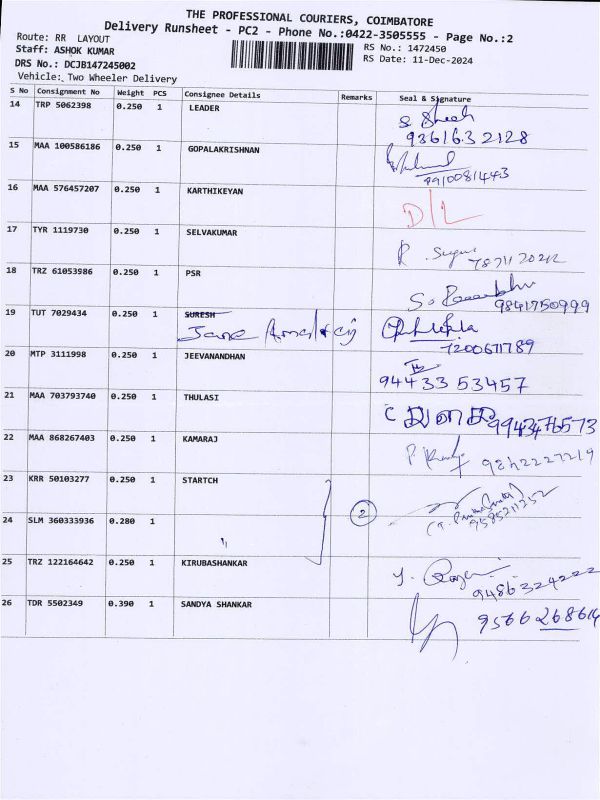 THE PROFESSIONAL COURIERS, COIMBATORE
Delivery Runsheet - PC2 - Phone No.:0422-3505555 - Page No.:2
Route: RR LAYOUT
RS No.: 1472450
Staff: ASHOK KUMAR
RS Date: 11-Dec-2024
DRS No.: DCJB147245002
Vehicle:. Two Wheeler Delivery
S No Consignment No Weight PCS Consignee Details Remarks Seal & Signature
14 TRP 5062398 0.250 1 LEADER
9361632128
15 MAA 100586186 0.250 1 GOPALAKRISHNAN
9910081443
16 MAA 576457207 0.250 1 KARTHIKEYAN
D/L
17 TYR 1119730 0.250 1 SELVAKUMAR
18 TRZ 61053986 0.250 1 PSR
9841750999
19 TUT 7029434 0.250 1 SURESH
Jane
7200671789
20 MTP 3111998 0.250 1 JEEVANANDHAN
94433 53457
21 MAA 703793740 0.250 1 THULASI
22 MAA 868267403 0.250 1 KAMARAJ
9842227219
23 KRR 50103277 0.250 1 STARTCH
2
9585211252
24 SLM 360333936 0.280 1 "
25 TRZ 122164642 0.250 1 KIRUBASHANKAR
9486324222
26 TDR 5502349 0.390 1 SANDYA SHANKAR
9566268614